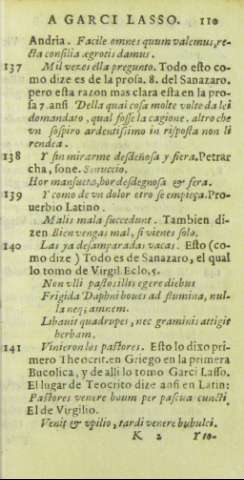 A GARCI LASSO. 110
Andria. Facile omnes quum valemus, re-
cta consilia ægrotis damus.
137 Mil vezes ella pregunto. Todo esto co-
mo dize es de la prosa. 8. del Sanazaro.
pero esta razon mas clara esta en la pro-
sa 7 ansi Della qual cosa molte volte da lei
domandato, qual fosse la cagione. altro che
vn sospiro ardentissimo in risposta non li
rendea.
138 Y sin mirarme desdeñosa y fiera. Petrar
cha, sone. Senuccio.
Hor mansueta, hor desdegnosa & fera.
139 Y como de vn dolor otro se empieça. Pro-
uerbio Latino.
Malis mala succedunt. Tambien di-
zen Bien vengas mal, si vienes solo.
140 Las ya desamparadas vacas. Esto (co-
mo dize) Todo es de Sanazaro, el qual
lo tomo de Virgil. Eclo. 5.
Non vlli pastos illis egere diebus
Frigida Daphni boues ad flumina, nul-
la neq; amnem.
Libauit quadrupes, nec graminis attigit
herbam.
141 Vinieron los pastores. Esto lo dixo pri-
mero Theocrit. en Griego en la primera
Bucolica, y de alli lo tomo Garci Lasso.
El lugar de Teocrito dize ansi en Latin:
Pastores venere boum per pascua cuncti
El de Virgilio.
Venit & vpilio, tardi venere bubulci.
K 2 Y to-